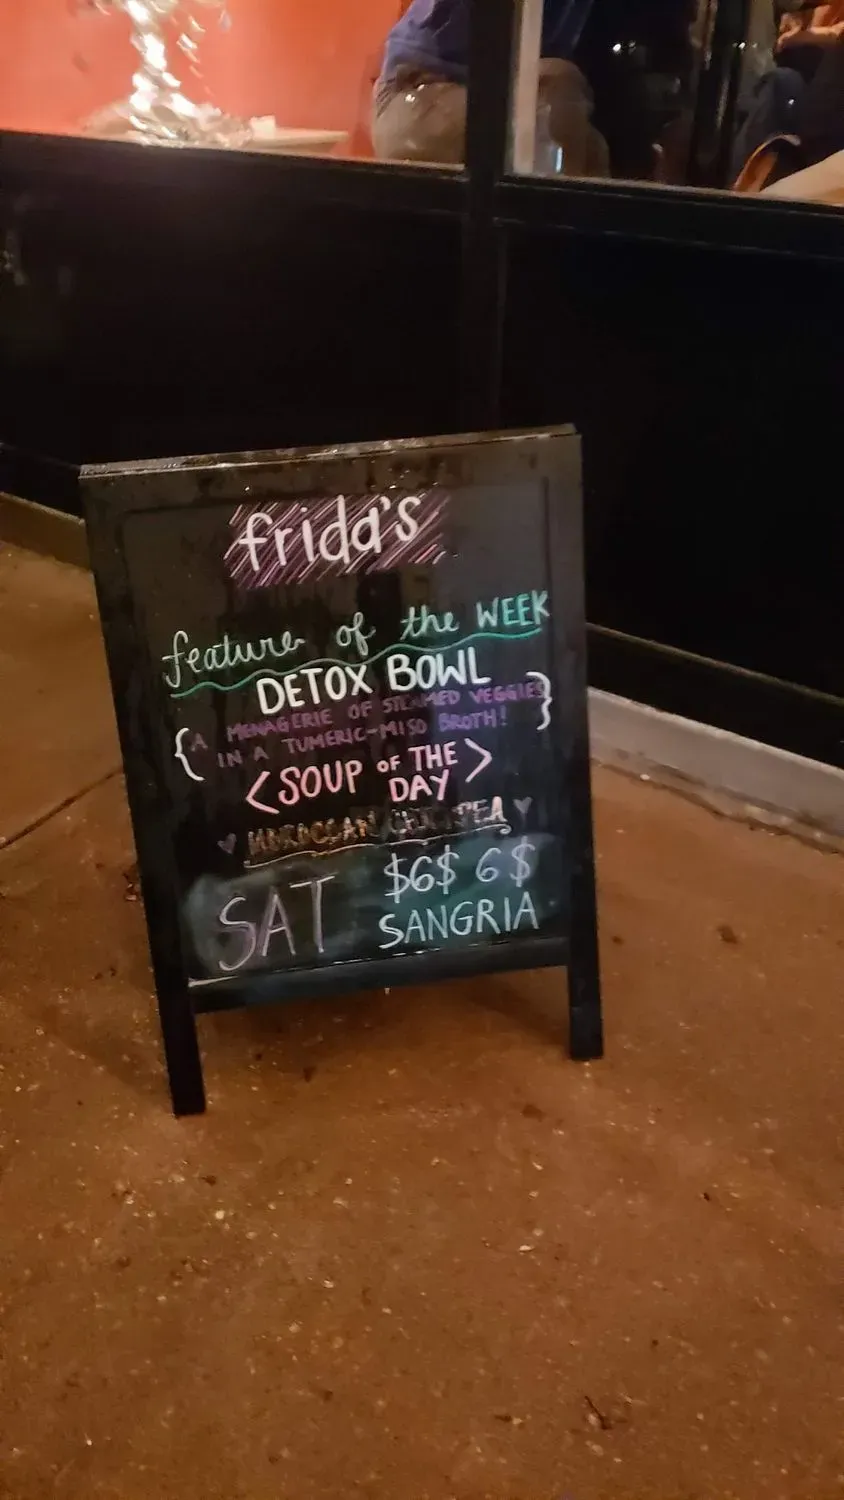 frida's
feature of the WEEK
DETOX BOWL
{A MENAGERIE OF STEAMED VEGGIES
IN A TUMERIC-MISO BROTH!}
<SOUP OF THE
DAY>
MOROCCAN CHICKPEA
SAT $6$ 6$
SANGRIA